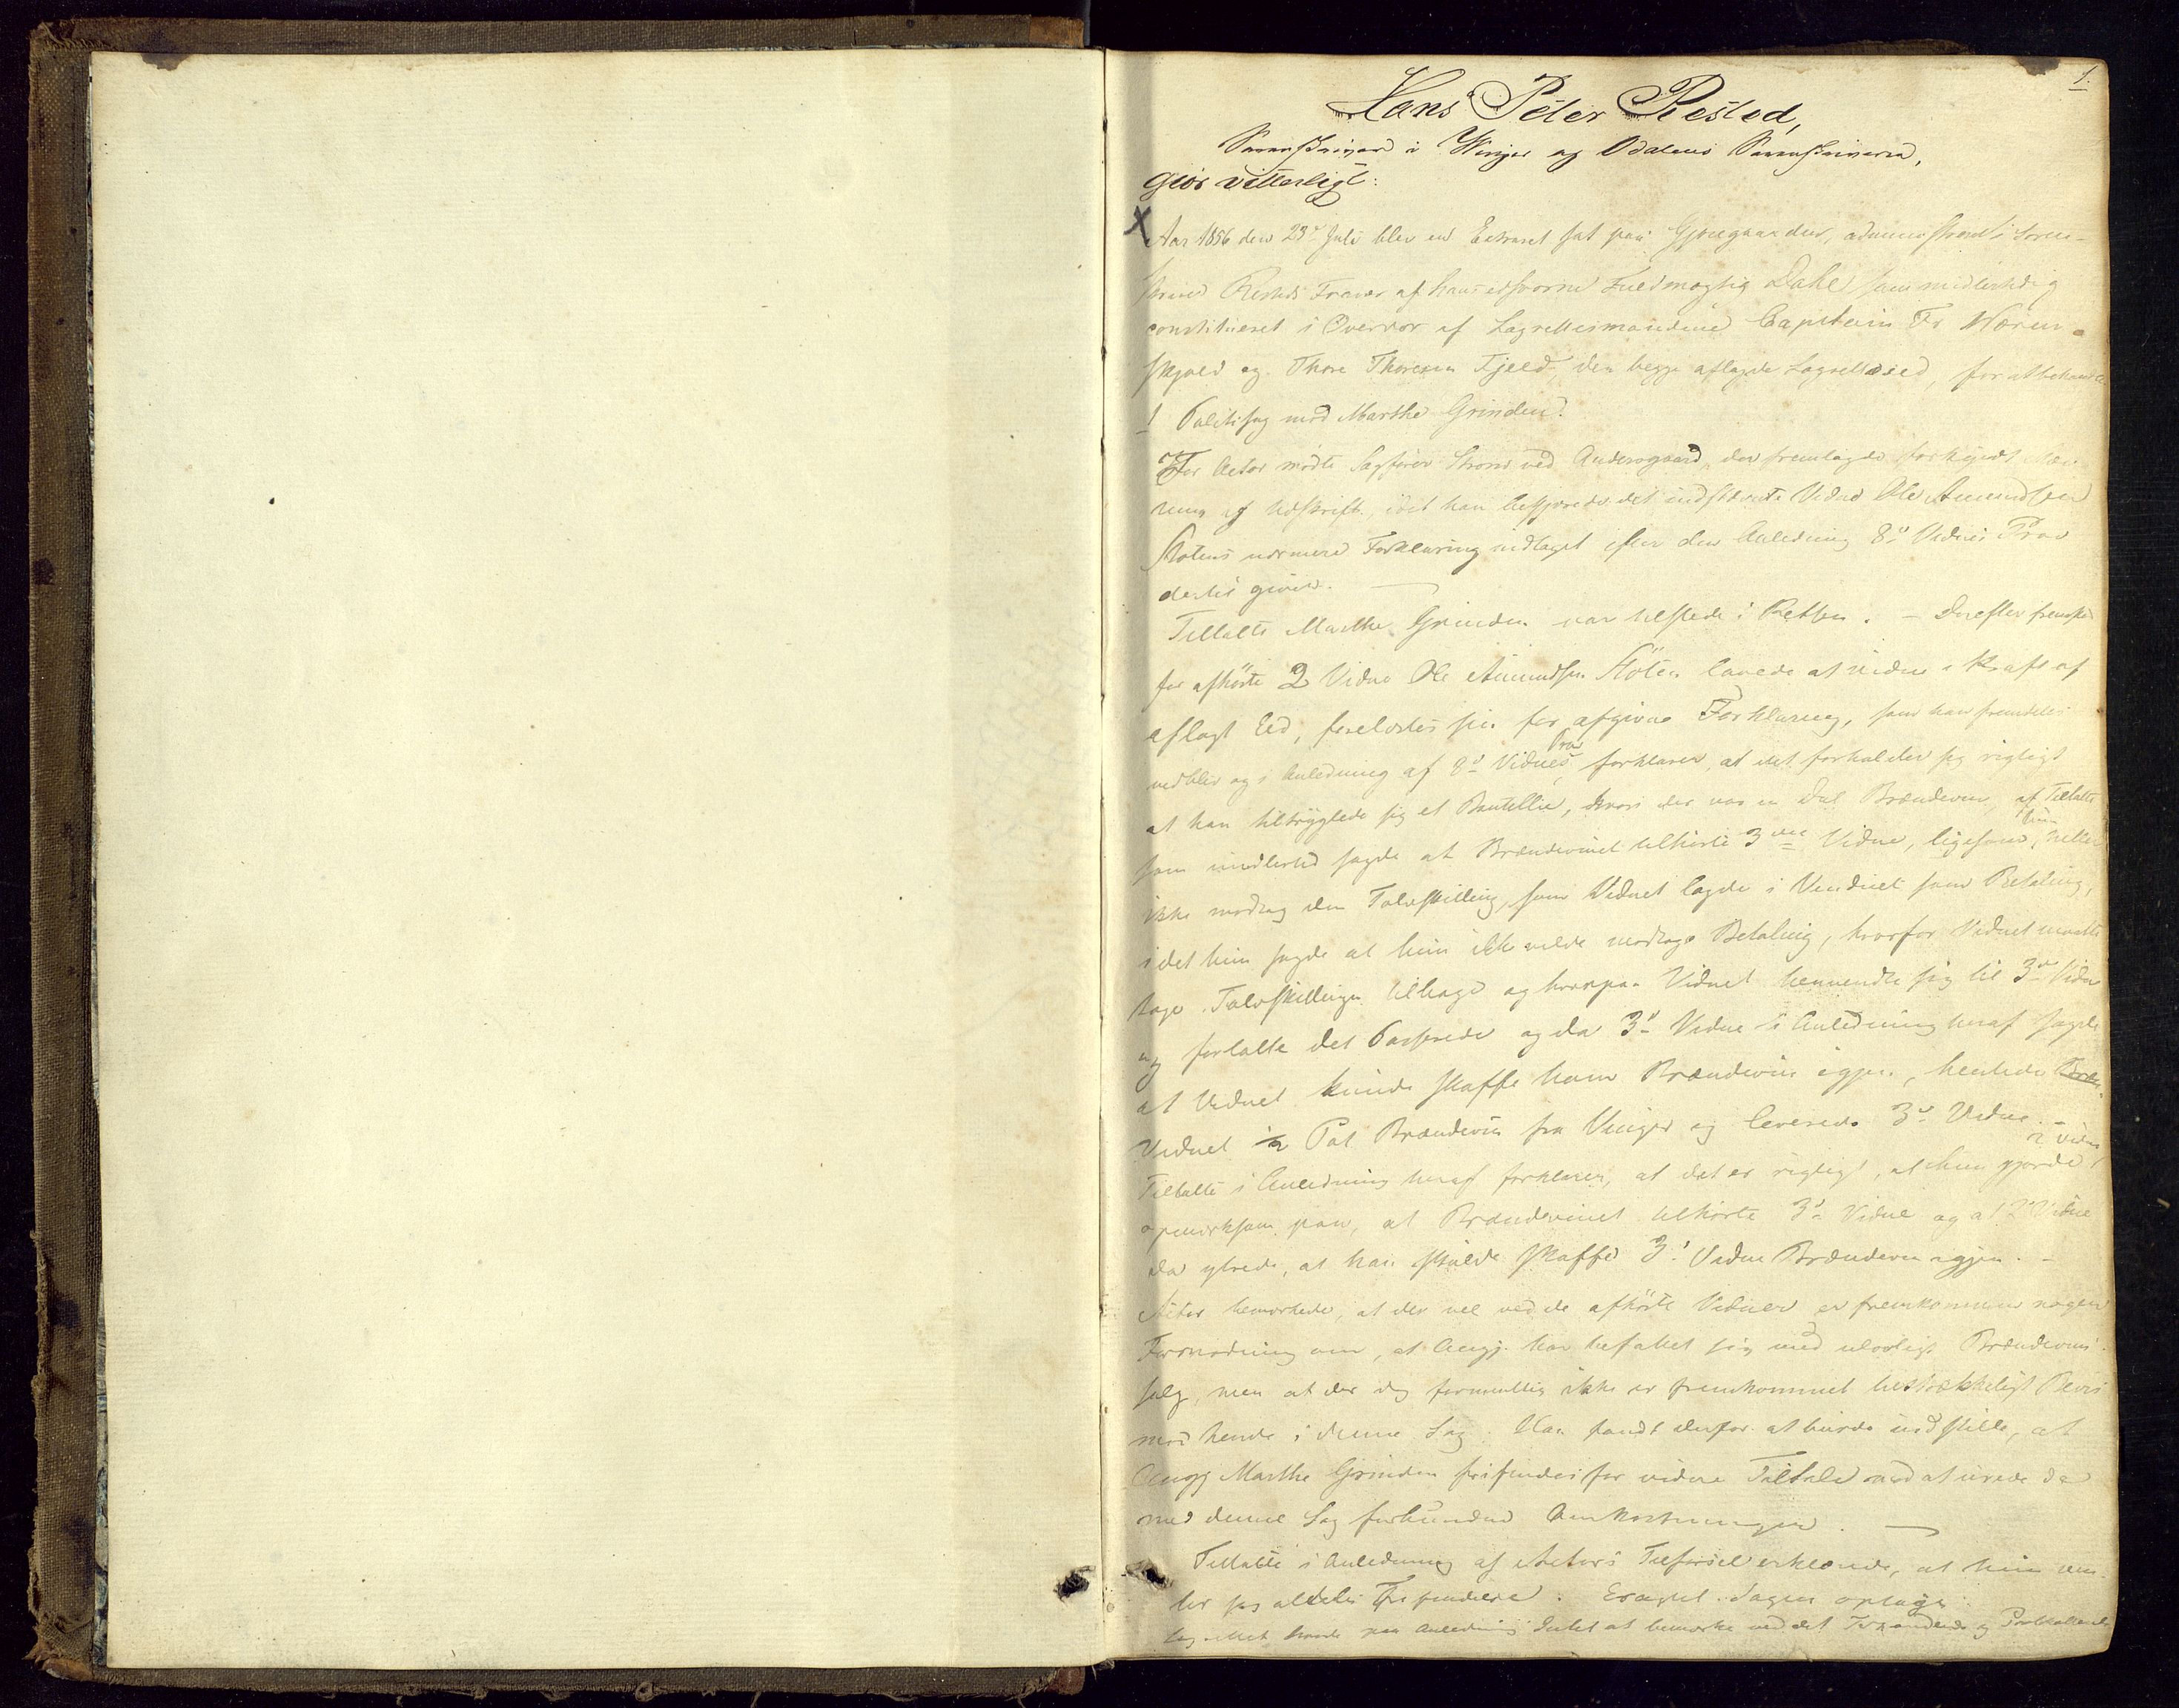 1.
Hans Peter Rested,
Sorenskriver i Winger og Odalens Sorenskriveri,
Gjør vitterligt:
X Aar 1856 den 23de Juli blev en Extraret sat paa Gjøsegaarden, administreret i Soren-
skriver Resteds Fravær af hans edsvorne Fuldmægtig Dahl som midlertidig
constitueret i Overvær af Lagrettesmændene Captain Fr Wæren-
skjold og Thore Thoresen Fjeld, der begge aflagde Lagrettesed, for at behandle
1 Politisag mod Marthe Grinden.
For Actor mødte Sagfører Strøm ved Andersgaard, der fremlagde forkyndt Stæv
ning og Udskrift, idet han begjærede det indstævnte Vidne Ole Amundsen
Støtens nærmere Forklaring indtaget efter den Anledning 8de Vidnes Prov
dertil giver.
Tiltalte Marthe Grinden var tilstede i Retten. - Derefter fremstod
før afhørte 2 Vidne Ole Amundsen Støten lovede at vidne i Kraft af
aflagt Eed, forelæstes sin før afgivne Forklaring, som han fremdeles
vedblev og i Anledning af 8de Vidnes Prov forklarer, at det forholder sig rigtigt
at han tiltryglede sig et Bouteille, hvori der var en Deel Brændeviin, af Tiltalte
som imidlertid sagde at Brændevinet tilhørte 3die Vidne, ligesom hun heller
ikke modtog den Tolvskilling, som Vidnet lagde i Vinduet som Betaling,
idet hun sagde at hun ikke vilde modtage Betaling, hvorfor Vidnet maatte
tage Tolvskillingen tilbage og hvorpaa Vidnet henvendte sig til 3die Vidne
og fortalte det Passerede og da 3die Vidne i Anledning heraf sagde
at Vidnet kunde skaffe ham Brændeviin igjen, hentede
Vidnet 1/2 Pot Brændeviin fra Vinger og leverede 3die Vidne. -
Tiltalte i Anledning heraf forklarer, at det er rigtigt, at hun gjorde 2 Vidne
opmærksom paa, at Brændevinet tilhørte 3die Vidne og at 2det Vidne
da yttrede, at han skulde skaffe 3die Vidne Brændeviin igjen. -
Actor bemærkede, at der vel ved de afhørte Vidner er fremkommen nogen
Formodning om, at Angj. har befattet sig med ulovligt Brændeviins-
salg, men at der dog formentlig ikke er fremkommet tilstrækkeligt Beviis
mod hende i denne Sag. Han fandt derfor at burde indstille, at
Angj Marthe Grinden frifindes for videre Tiltale mod at udrede de
med denne Sag forbundne Omkostninger. -
Tiltalte i Anledning af Actors Tilførsel erklærede, at hun
sig aldeles frifindes. Eragtet. Sagen optages
Lagrettet havde paa Anledning Intet at bemærke ved det Foranførte og Protokollerede